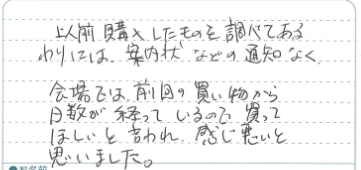 以前購入したものを調べてある
わりには、案内状などの通知なく、
会場では、前回の買い物から
日数が経っているので買って
ほしいと言われ、感じ悪いと
思いました。